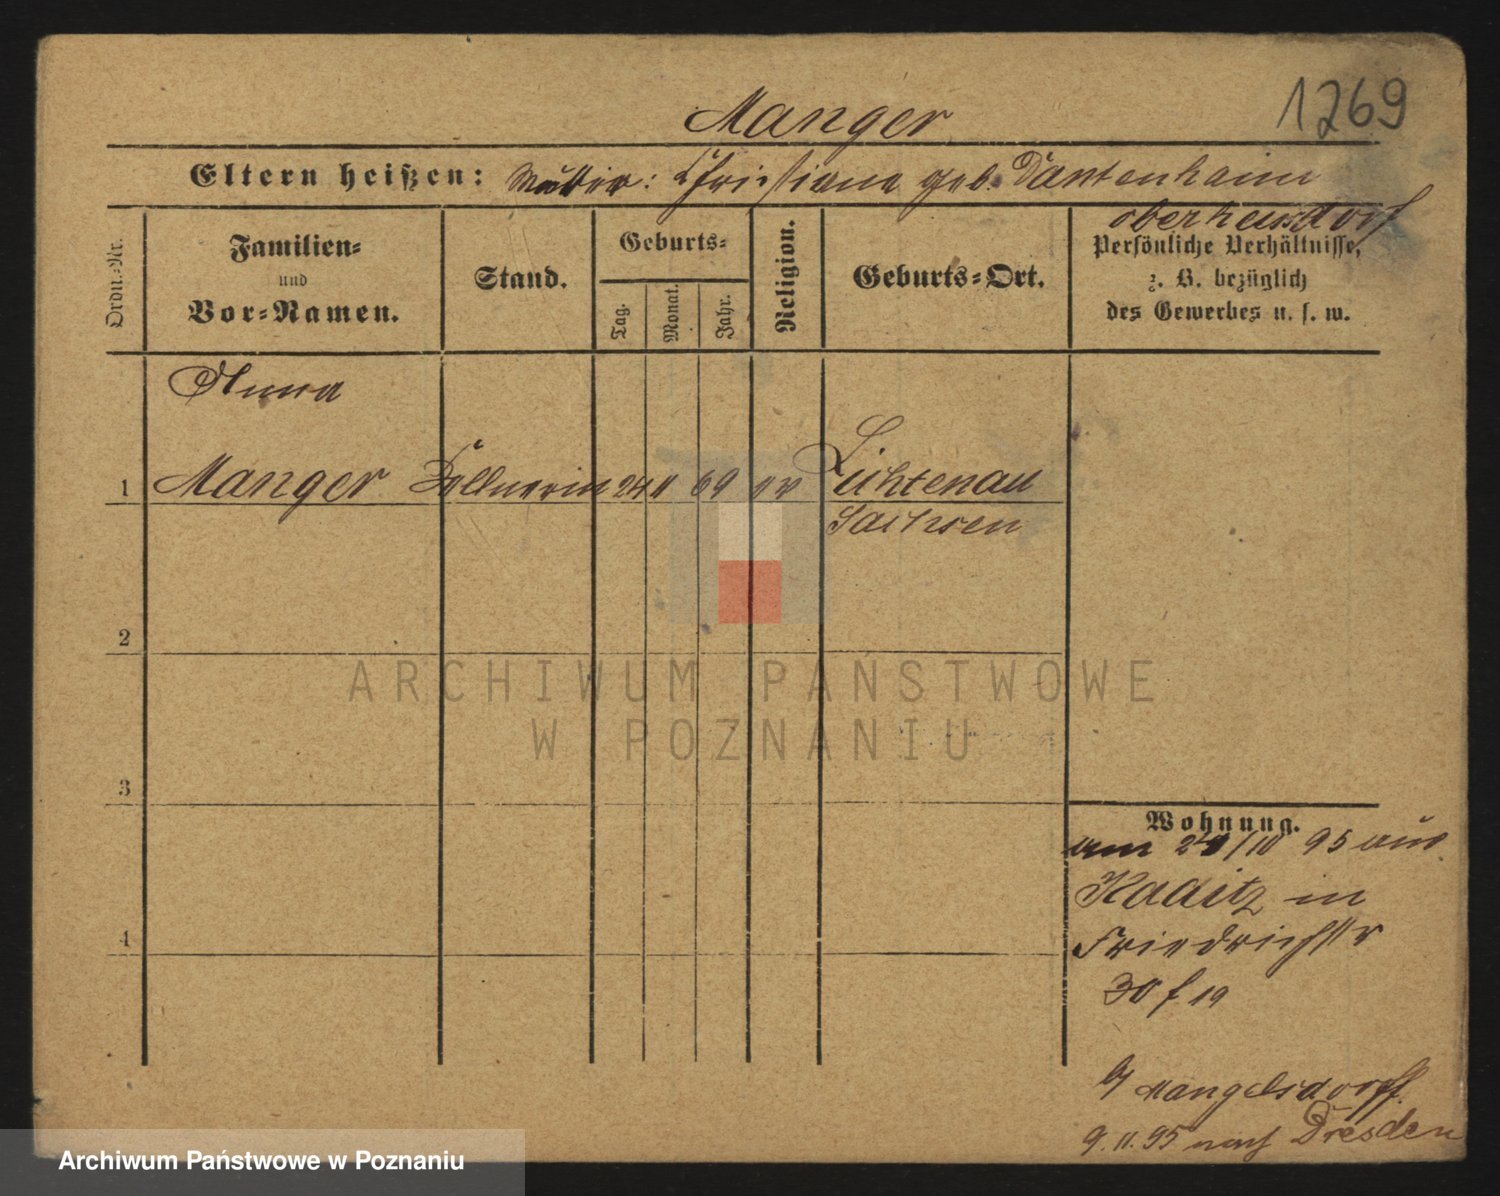 1269
Manger
Eltern heißen: Mutter: Christiane geb. Dantenhain
oberheusdorf
Ordn.-Nr.
Familien-
und
Vor-Namen.
Stand.
Geburts-
Tag.
Monat.
Jahr.
Religion.
Geburts-Ort.
Persönliche Verhältnisse,
z. B. bezüglich
des Gewerbes u. s. w.
Anna
1 Manger Kellnerin 24 11 69 ev Lichtenau
Sachsen
2
3
4
Wohnung.
am 24/10 95 aus
Kaditz in
Friedrichstr
30 f 19
b/ Mangelsdorff
9.11.95 nach Dresden
ARCHIWUM PAŃSTWOWE
W POZNANIU
Archiwum Państwowe w Poznaniu